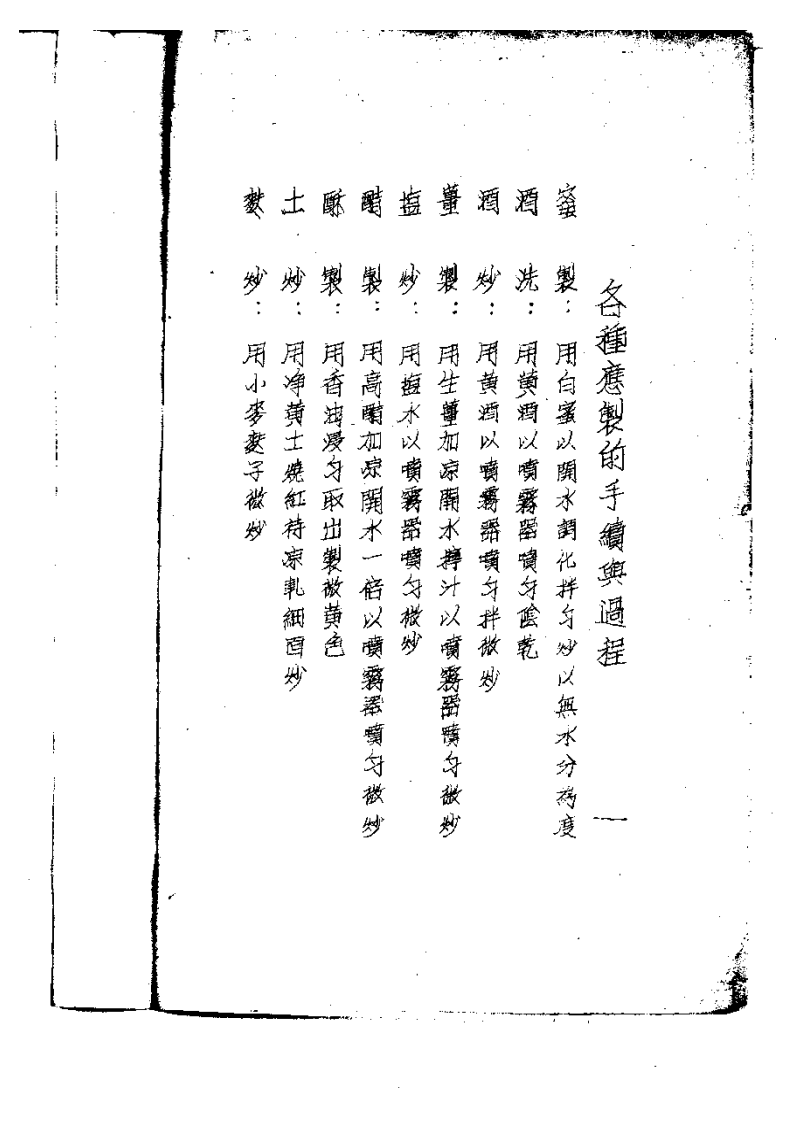 各種應製的手續與過程
一
蜜製：用白蜜以開水調化拌匀炒以無水分為度
酒洗：用黄酒以噴霧器噴匀陰乾
酒炒：用黄酒以噴霧器噴匀拌微炒
薑製：用生薑加凉開水擰汁以噴霧器噴匀微炒
塩炒：用塩水以噴霧器噴匀微炒
醋製：用高醋加凉開水一倍以噴霧器噴匀微炒
酥製：用香油浸匀取出製微黄色
土炒：用净黄土燒紅待凉軋細面炒
麩炒：用小麥麩子微炒